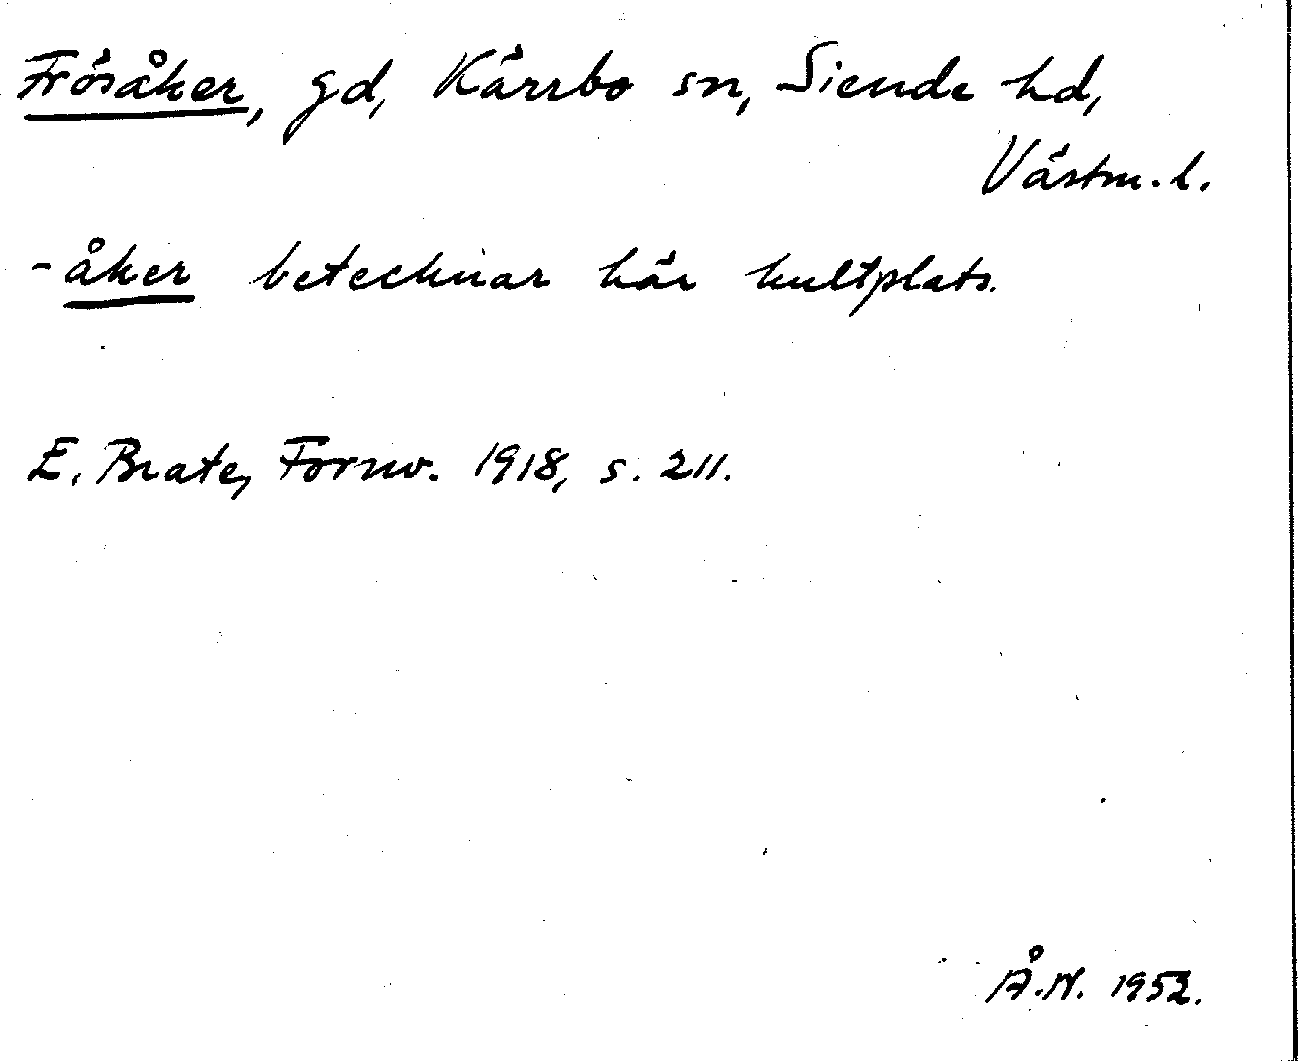 Frösåker, gd, Kärrbo sn, Siende hd,
Västm. l.
-åker betecknar här kultplats.
E. Brate, Fornv. 1918, s. 211.
Å.N. 1952.